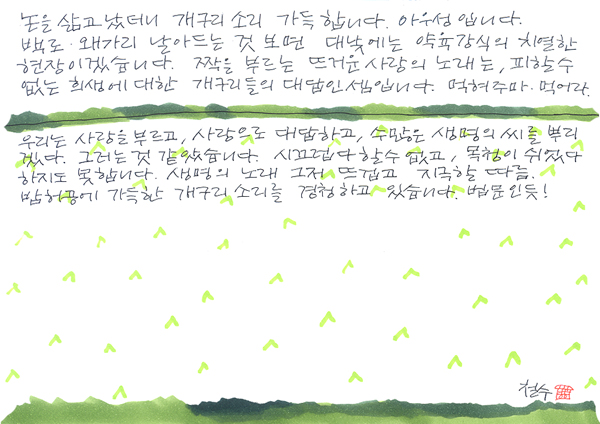 논을 삶고 났더니 개구리 소리 가득 합니다. 아우성입니다.
백로·왜가리 날아드는 것 보면 대낮에는 약육강식의 치열한
현장이겠습니다. 짝을 부르는 뜨거운 사랑의 노래는, 피할수
없는 희생에 대한 개구리들의 대답인셈입니다. 먹혀주마. 먹어라.
우리는 사랑을 부르고, 사랑으로 대답하고, 수많은 생명의 씨를 뿌리
겠다. 그러는것 같았습니다. 시끄럽다 할수 없고, 목청이 쉬었다
하지도 못합니다. 생명의 노래 그저 뜨겁고 지극할 따름.
밤허공에 가득한 개구리 소리를 경청하고 있습니다. 법문인듯!
철수